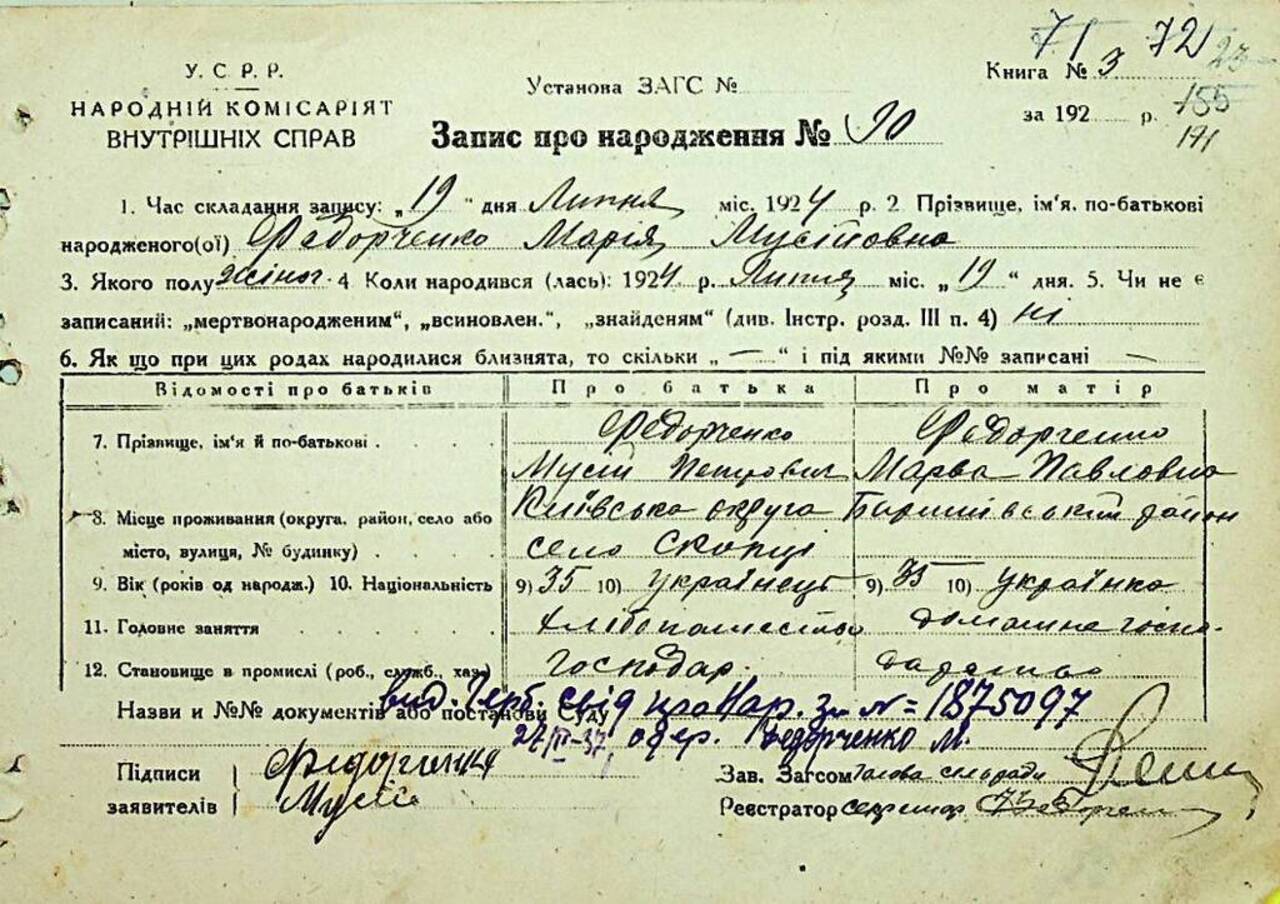 71 72 23
У. С. Р. Р.
НАРОДНІЙ КОМІСАРІЯТ
ВНУТРІШНІХ СПРАВ
Установа ЗАГС №
Книга № 3
за 192 р.
155
171
Запис про народження № 90
1. Час складання запису: „19" дня Липня міс. 1924 р. 2 Прізвище, ім'я, по-батькові
народженого(ої) Федорченко Марія Мусіївна
3. Якого полу жіноч. 4 Коли народився (лась): 1924 р. Липня міс. „19" дня. 5. Чи не є
записаний: „мертвонародженим", „всиновлен.", „знайденям" (див. Інстр. розд. III п. 4) ні
6. Як що при цих родах народилися близнята, то скільки „—" і під якими №№ записані —
Відомості про батьків Про батька Про матір
7. Прізвище, ім'я й по-батькові Федорченко Федорченко
Мусій Петрович Марва Павловна
8. Місце проживання (округа, район, село або Київська округа Баришівський район
місто, вулиця, № будинку) село Скопці
9. Вік (років од народж.) 10. Національність 9) 35 10) українець 9) 35 10) українка
11. Головне заняття хлібопашество домашне госпо-
12. Становище в промислі (роб., служб., хаз.) господар. дарство
Назви и №№ документів або постанови Суду вид. Герб. свід про Нар. за № = 1875097
27/III-37, одер. Федорченко М.
Підписи Федорченко Зав. Загсом Голова сільради
заявителів Мусій Реєстратор секретар